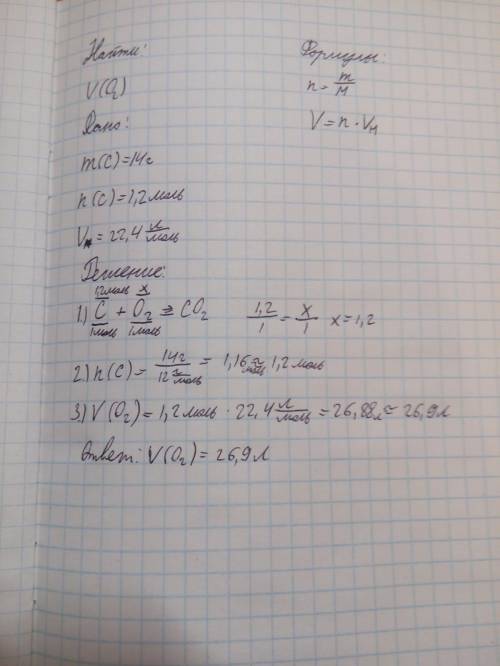 Найти:
V(O₂)
Дано:
m(C)=14г
n(C)=1,2моль
Vм=22,4 л/моль
Формулы:
n=m/M
V=n·Vм
Решение:
1,2моль x
1.) C + O₂ = CO₂ 1,2/1 = x/1 x=1,2
1моль 1моль
2.) n(C)= 14г/12 г/моль = 1,16 ≈ 1,2 моль
моль
3.) V(O₂)=1,2моль · 22,4 л/моль = 26,88л ≈ 26,9л
Ответ: V(O₂)=26,9л